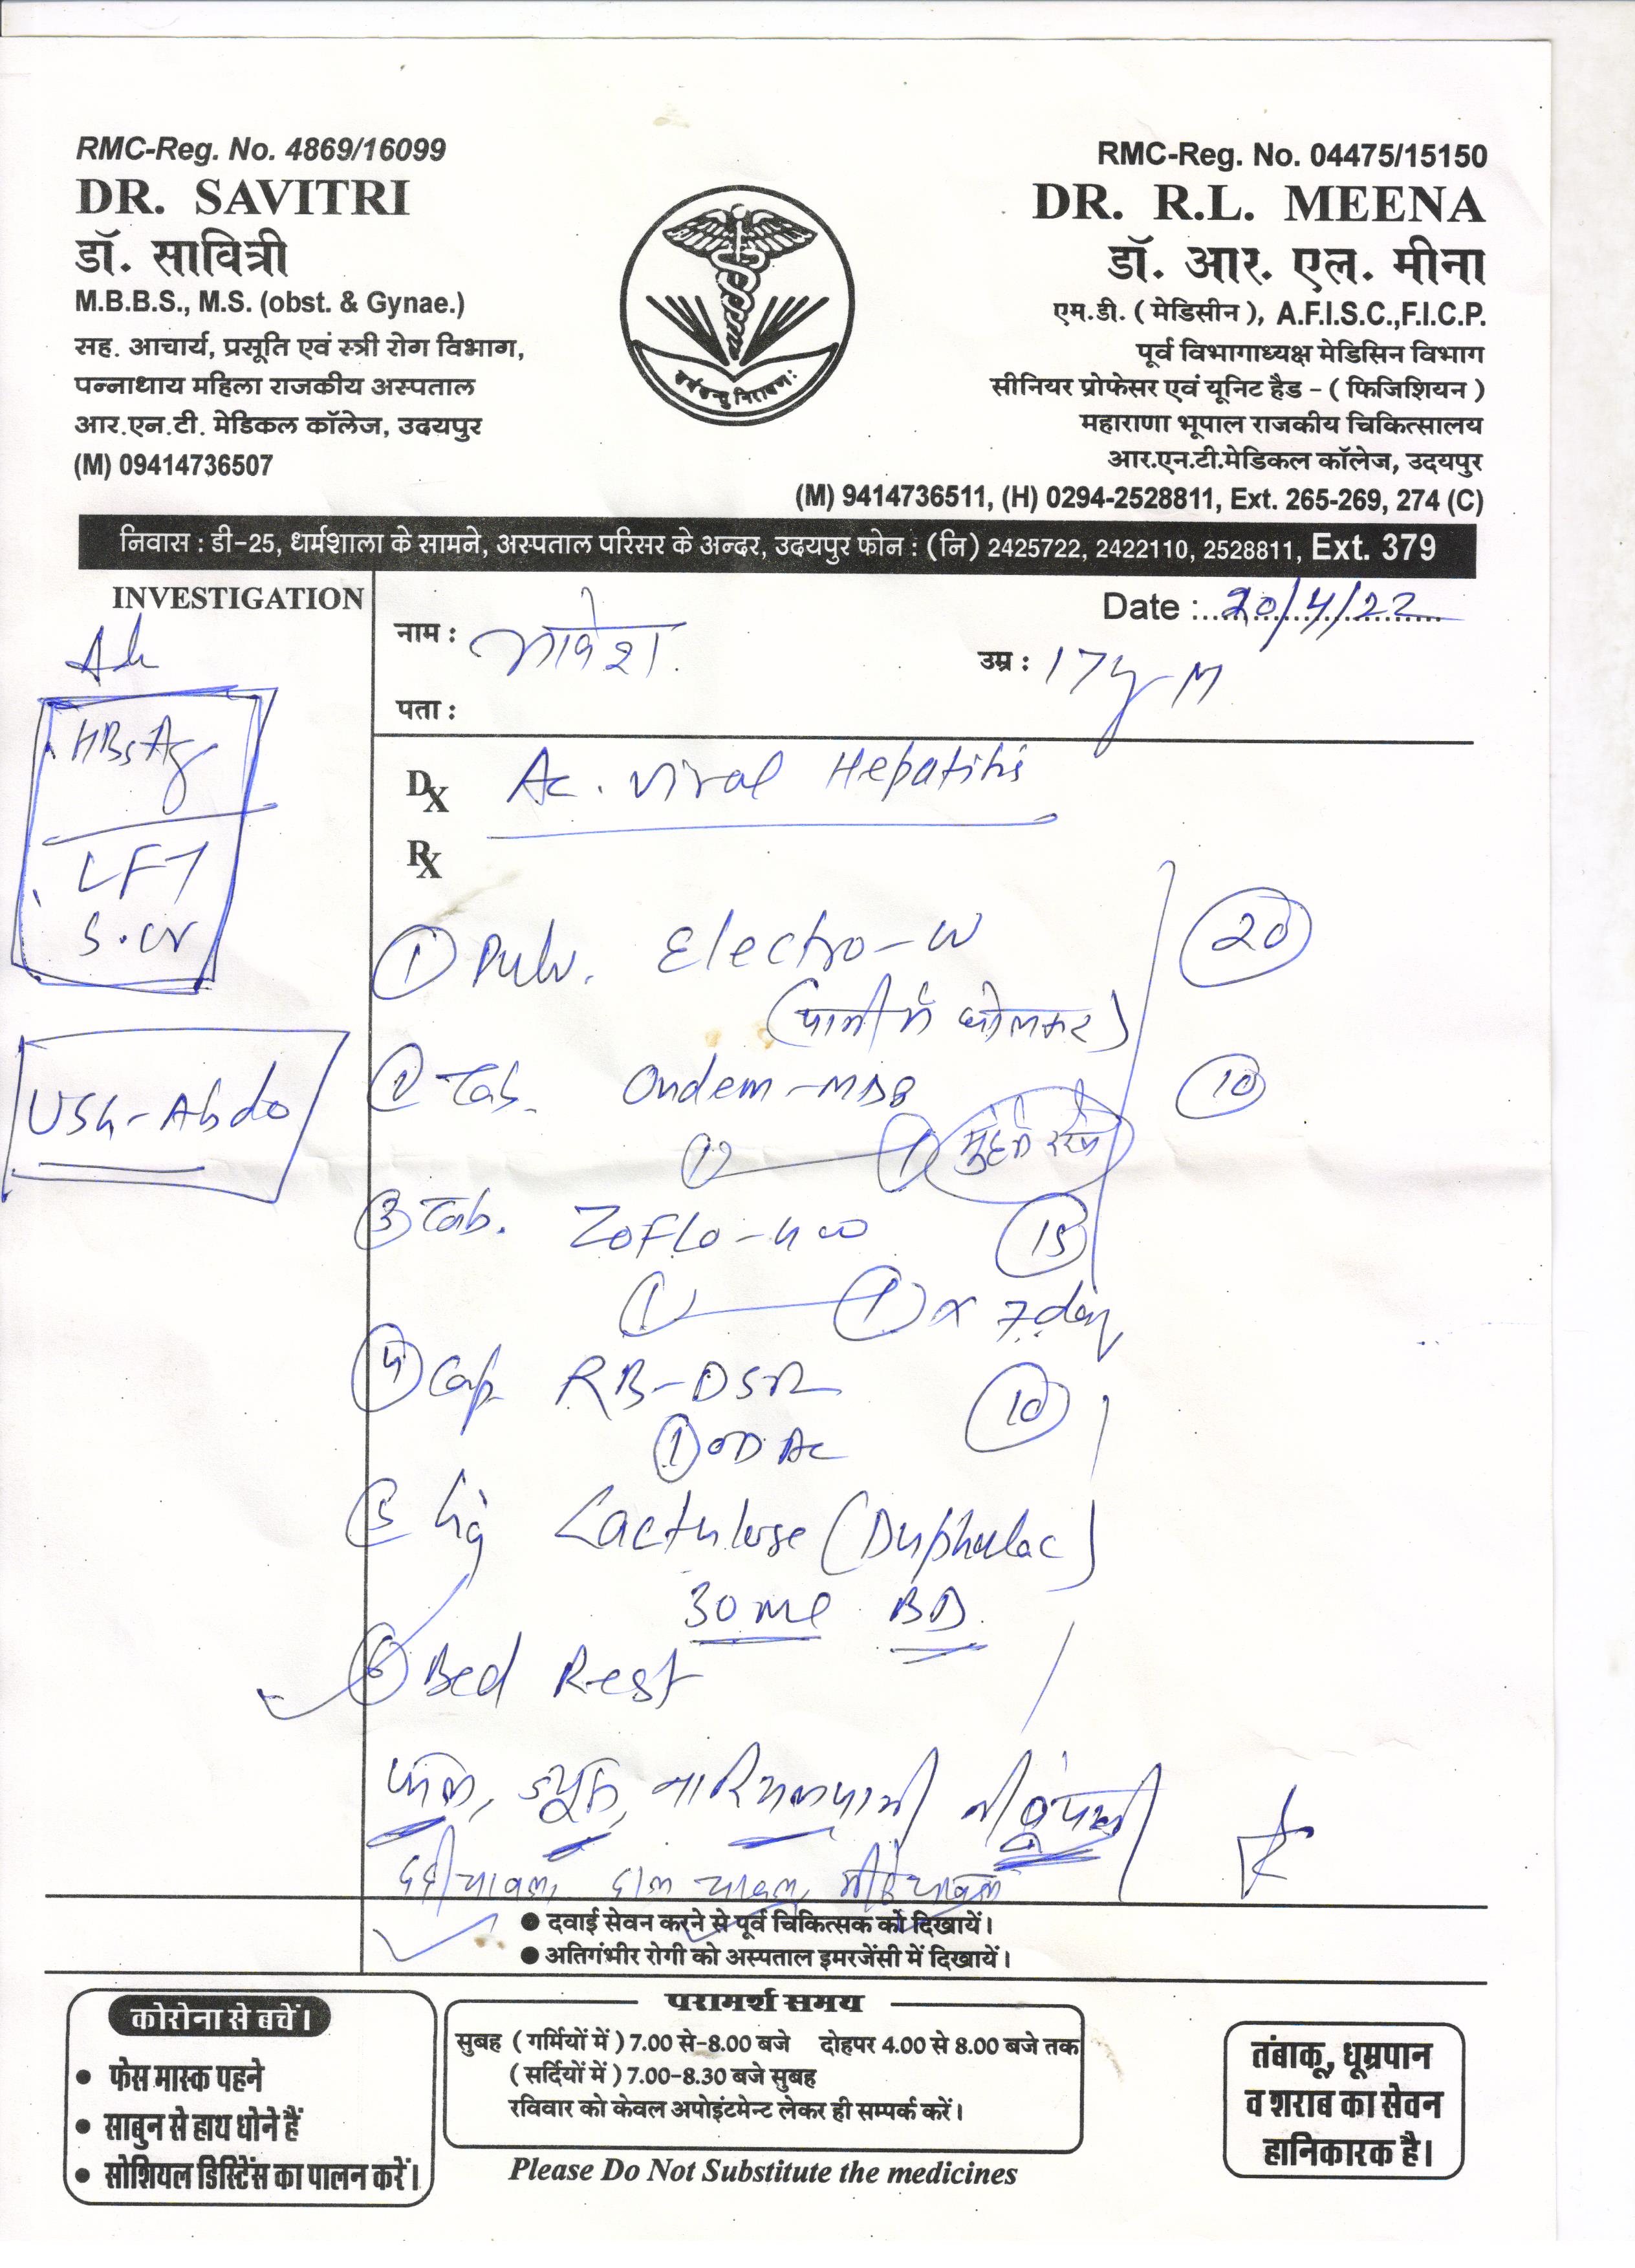 RMC-Reg. No. 4869/16099
DR. SAVITRI
डॉ. सावित्री
M.B.B.S., M.S. (obst. & Gynae.)
सह. आचार्य, प्रसूति एवं स्त्री रोग विभाग,
पन्नाधाय महिला राजकीय अस्पताल
आर.एन.टी. मेडिकल कॉलेज, उदयपुर
(M) 09414736507
RMC-Reg. No. 04475/15150
DR. R.L. MEENA
डॉ. आर. एल. मीना
एम.डी. ( मेडिसीन ), A.F.I.S.C.,F.I.C.P.
पूर्व विभागाध्यक्ष मेडिसिन विभाग
सीनियर प्रोफेसर एवं यूनिट हैड - ( फिजिशियन )
महाराणा भूपाल राजकीय चिकित्सालय
आर.एन.टी.मेडिकल कॉलेज, उदयपुर
(M) 9414736511, (H) 0294-2528811, Ext. 265-269, 274 (C)
निवास : डी-25, धर्मशाला के सामने, अस्पताल परिसर के अन्दर, उदयपुर फोन : (नि) 2425722, 2422110, 2528811, Ext. 379
INVESTIGATION
HBsAg
LFT
S.Cr
USG-Abdo
Date : 20/4/22
नाम :
उम्र : 17y M
पता :
Dx Ac. Viral Hepatitis
Rx
① Pulv. Electro-W 20
(पानी में घोलकर)
② Tab. Ondem-MD8 10
1 मुंह में रखें
③ Tab. Zoflo-400 15
1 — 1 x 7 day
④ Cap RB-DSR 10
1 OD AC
⑤ Liq Lactulose (Duphalac)
30ml BD
⑥ Bed Rest
फल, ज्यूस, नारियल पानी नींबू पानी
दही चावल, दाल चावल, मीठे चावल
● दवाई सेवन करने से पूर्व चिकित्सक को दिखायें।
● अतिगंभीर रोगी को अस्पताल इमरजेंसी में दिखायें।
कोरोना से बचें।
• फेस मास्क पहने
• साबुन से हाथ धोने हैं
• सोशियल डिस्टेंस का पालन करें।
परामर्श समय
सुबह ( गर्मियों में ) 7.00 से-8.00 बजे दोहपर 4.00 से 8.00 बजे तक
( सर्दियों में ) 7.00-8.30 बजे सुबह
रविवार को केवल अपोइंटमेन्ट लेकर ही सम्पर्क करें।
Please Do Not Substitute the medicines
तंबाकू, धूम्रपान
व शराब का सेवन
हानिकारक है।